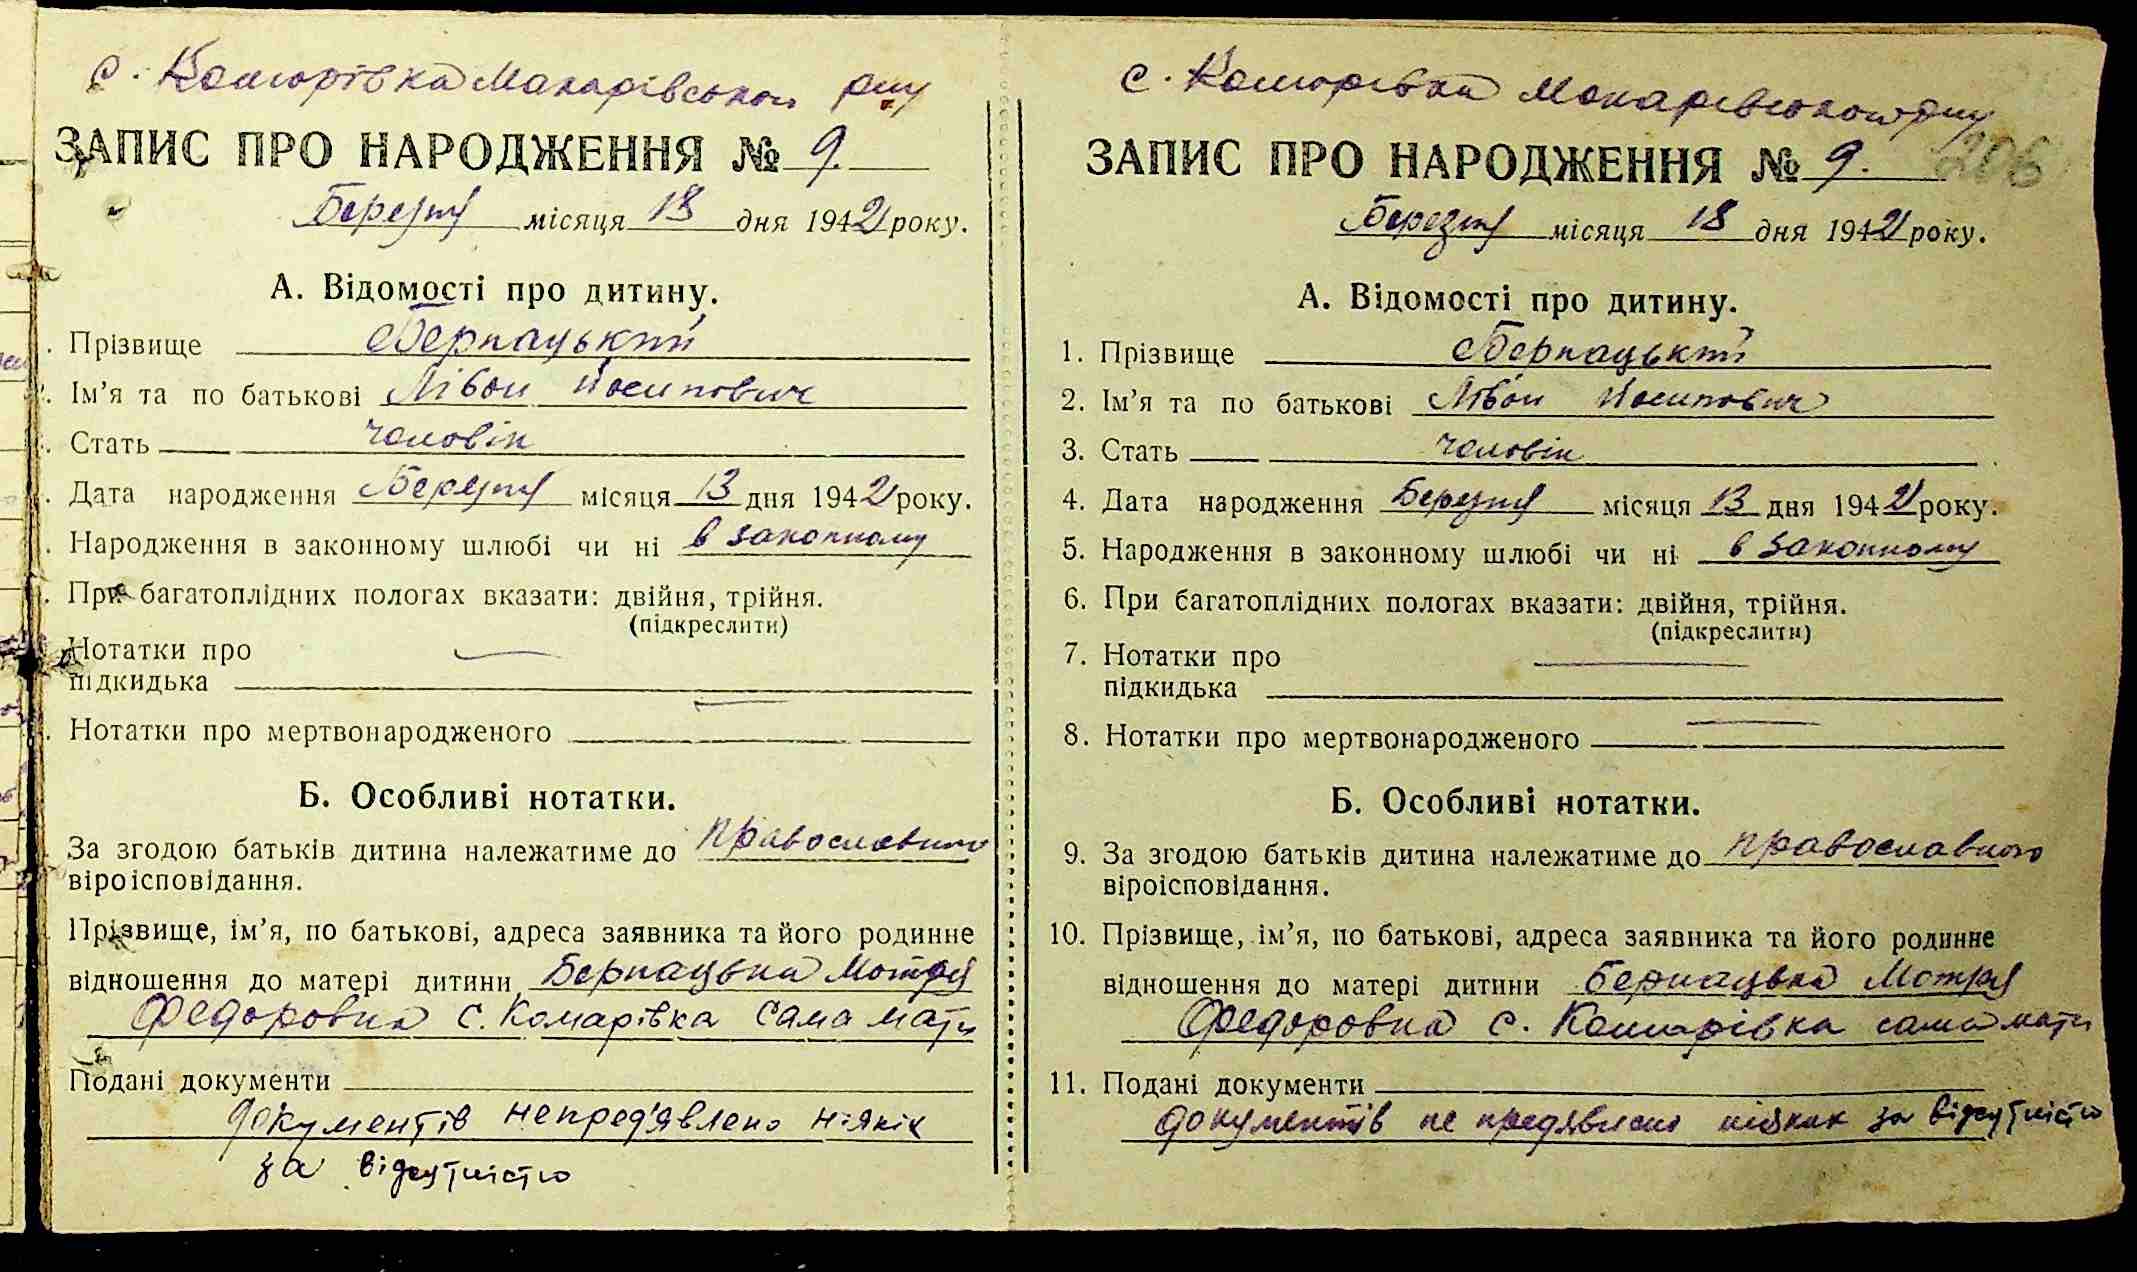 с. Комарівка Макарівського р-ну
ЗАПИС ПРО НАРОДЖЕННЯ № 9.
Березня місяця 18 дня 1942 року.
А. Відомості про дитину.
Прізвище Бернацький
Ім’я та по батькові Лівон Йосипович
Стать чоловік
Дата народження Березня місяця 13 дня 1942 року.
Народження в законному шлюбі чи ні в законному
При багатоплідних пологах вказати: двійня, трійня.
(підкреслити)
Нотатки про
підкидька
Нотатки про мертвонародженого
Б. Особливі нотатки.
За згодою батьків дитина належатиме до православного
віроісповідання.
Прізвище, ім’я, по батькові, адреса заявника та його родинне
відношення до матері дитини Бернацька Мотря
Федоровна с. Комарівка сама мати
Подані документи
документів непред'явлено ніяких
за відсутністю
с. Комарівка Макарівського р-ну
ЗАПИС ПРО НАРОДЖЕННЯ № 9. 206
Березня місяця 18 дня 1942 року.
А. Відомості про дитину.
1. Прізвище Бернацький
2. Ім’я та по батькові Лівон Йосипович
3. Стать чоловік
4. Дата народження Березня місяця 13 дня 1942 року.
5. Народження в законному шлюбі чи ні в законному
6. При багатоплідних пологах вказати: двійня, трійня.
(підкреслити)
7. Нотатки про
підкидька
8. Нотатки про мертвонародженого
Б. Особливі нотатки.
9. За згодою батьків дитина належатиме до православного
віроісповідання.
10. Прізвище, ім’я, по батькові, адреса заявника та його родинне
відношення до матері дитини Бернацька Мотря
Федоровна с. Комарівка сама мати
11. Подані документи
документів не предявлено за відсутністю